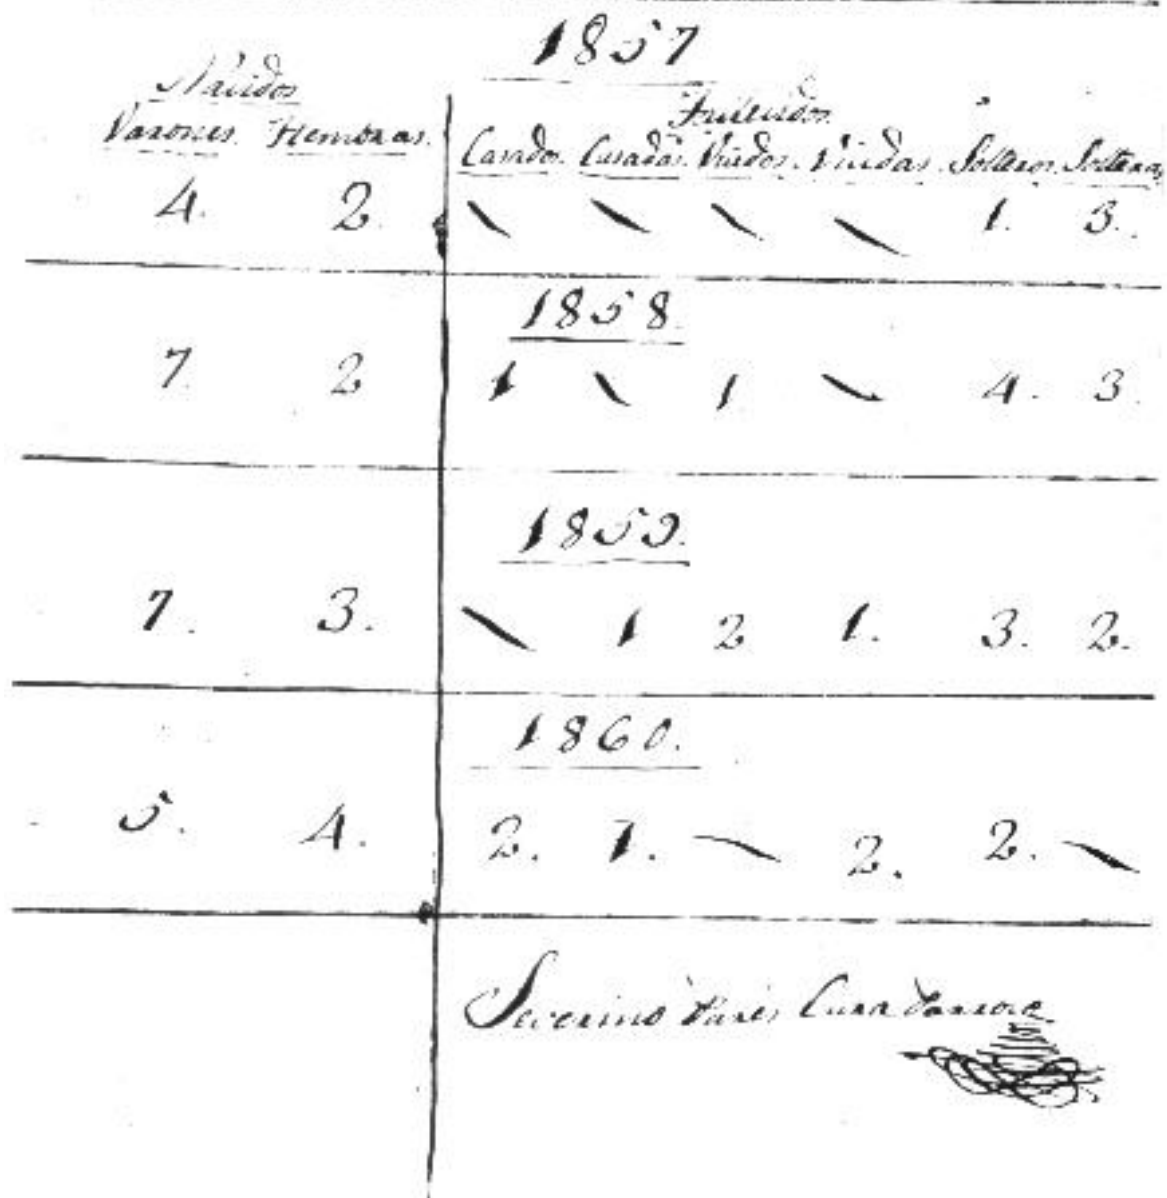 1857
Nacidos
Fallecidos
Varones. Hembras. Casados. Casadas. Viudos. Viudas. Solteros. Solteras
4. 2. \ \ \ \ 1. 3.
1858.
7. 2 1 \ 1 \ 4. 3.
1859.
7. 3. \ 1 2 1. 3. 2.
1860.
5. 4. 2. 1. \ 2. 2. \
Severino Parés Cura Parroco